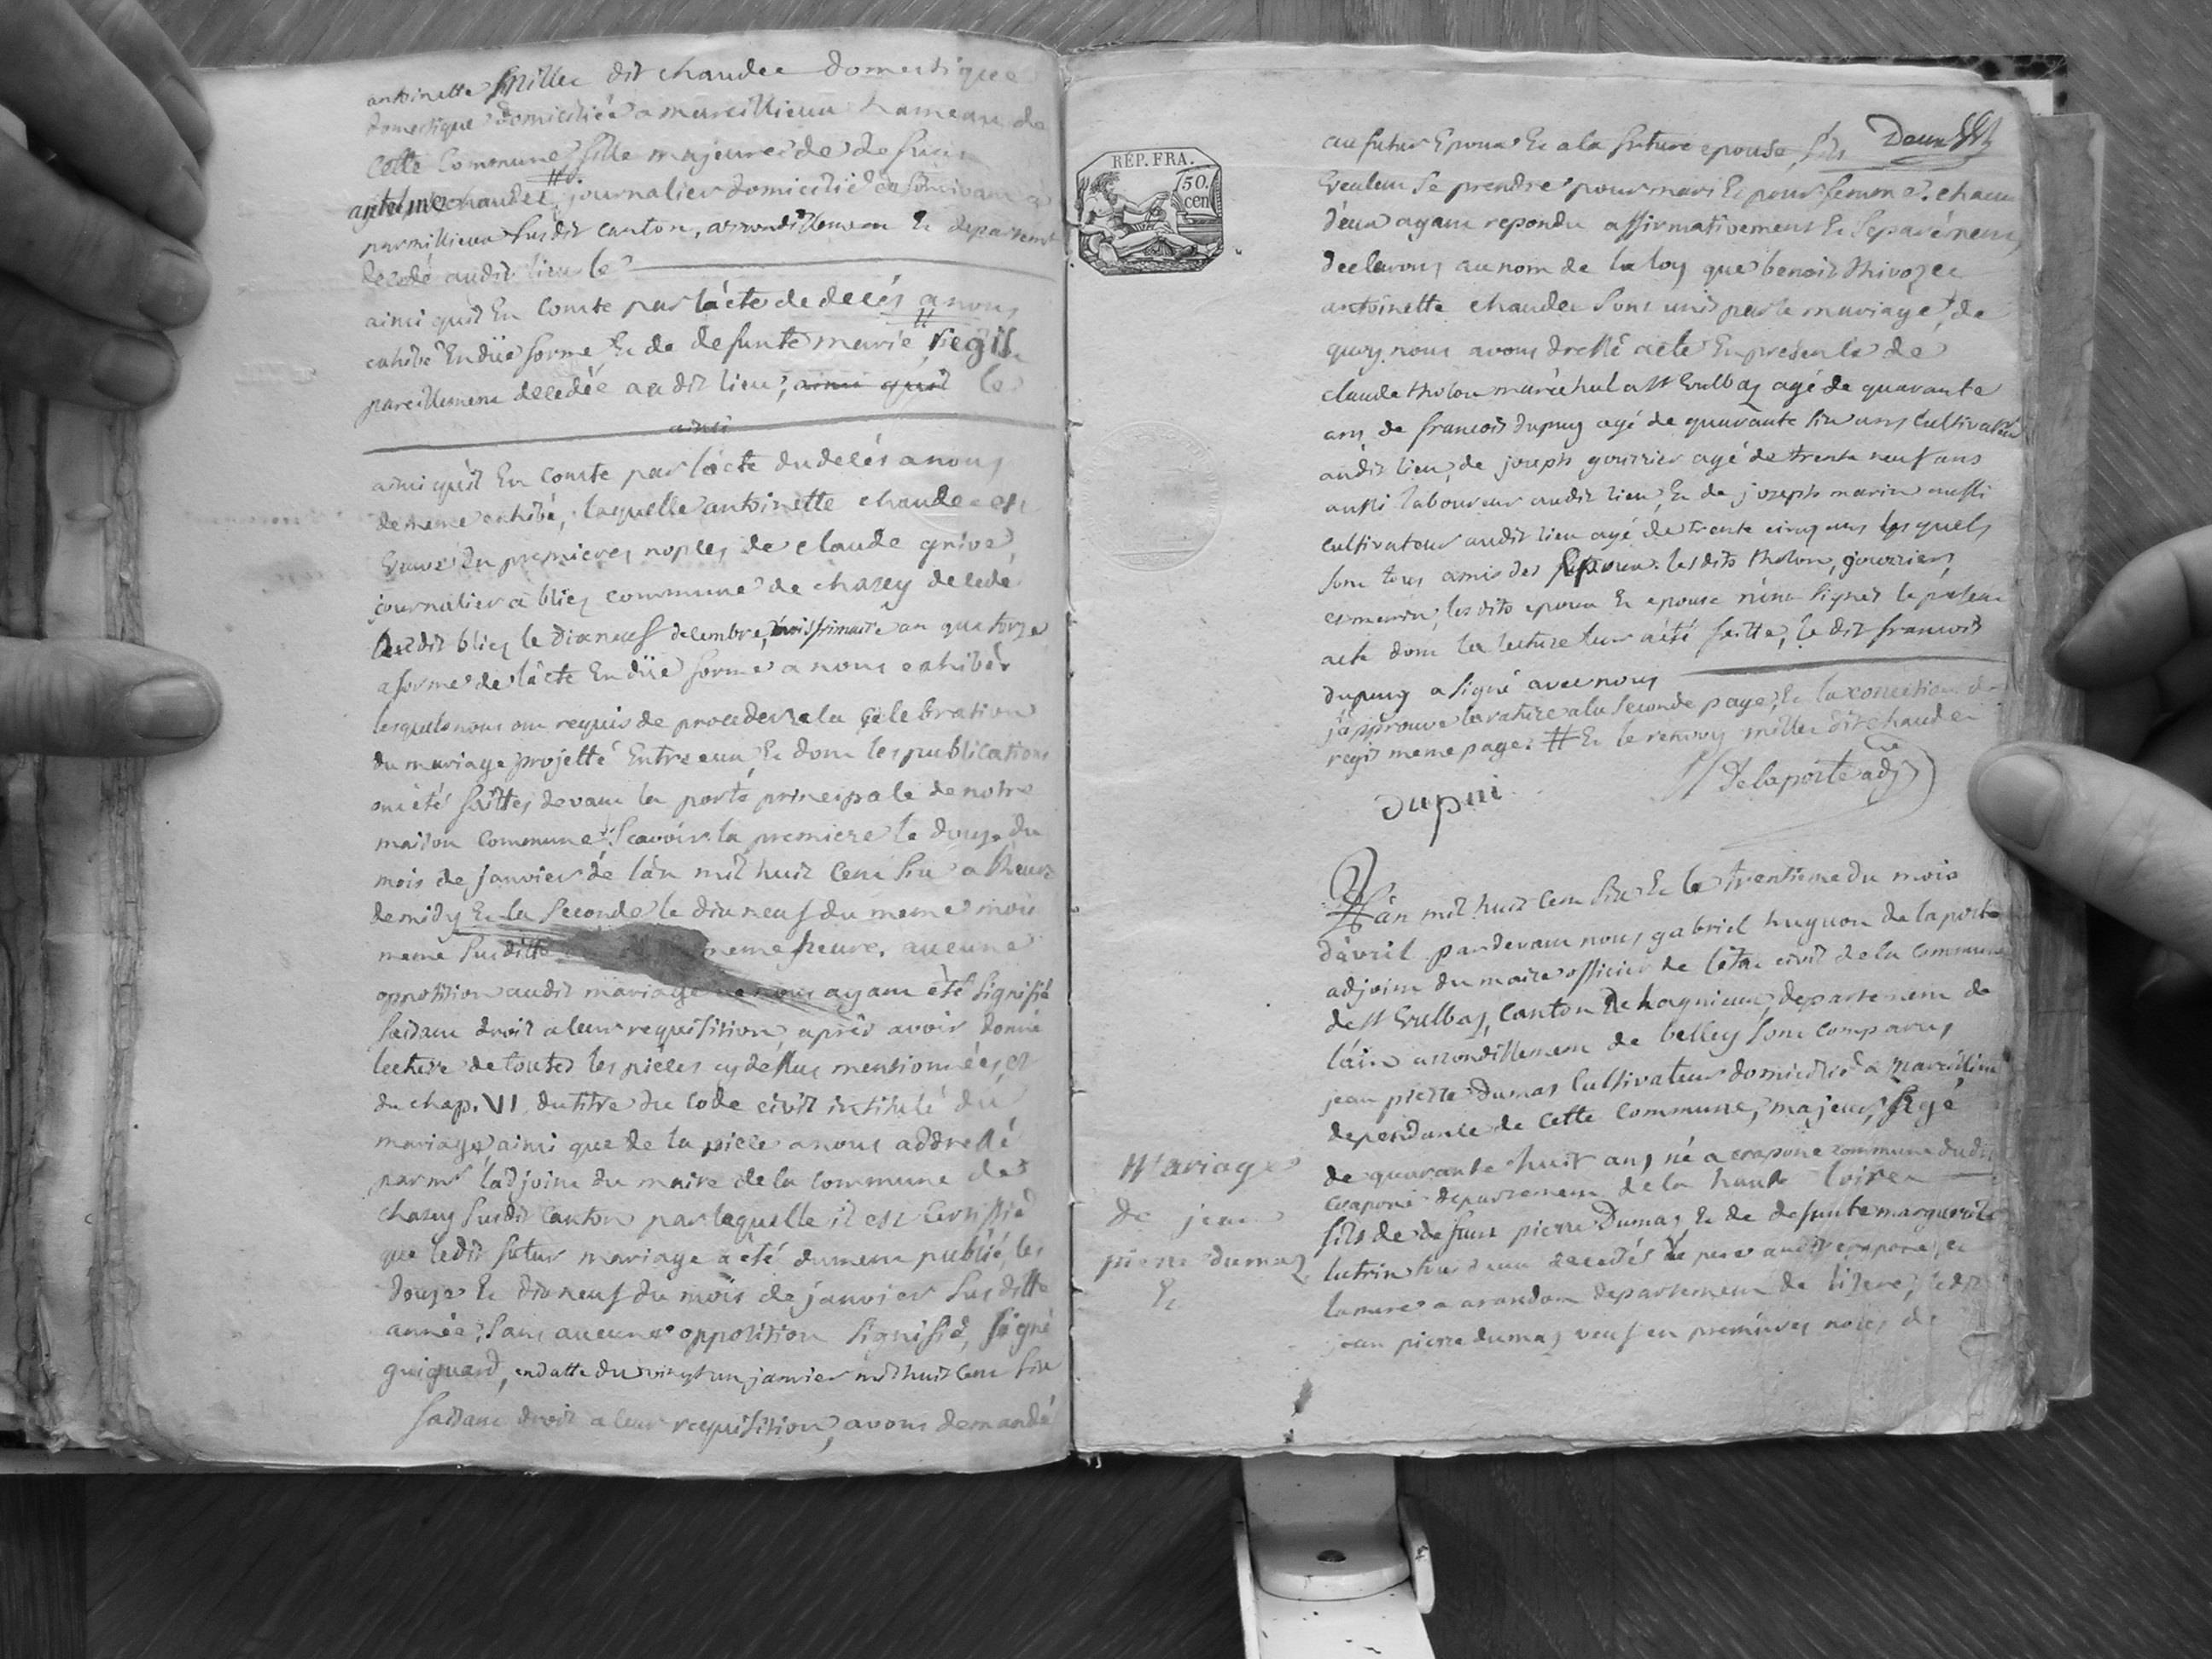 antoinette Miller dit chaudee domestique
domestique domiciliée a marcillieux hameau de
Cette Commune, fille majeure de defunt
antelme chaudee, journalier domicilié en son vivant a
parmillieux susdit canton, arrondissement Et departement
decedé audit lieu le
ainsi quil En Conste par lácte de decés a nous
exhibé En düe forme Et de defunte marie Regis
pareillement decedée audit lieu, ainsi quil le
ainsi
ainsi quil En Conste par lácte du decés a nous
de meme exhibé, laquelle antoinette chaudee est
veuve En premieres nopces de claude grive,
journalier a blies commune de chazey decedé
audit blies le dix neuf decembre, mois frimaire an quatorze
a forme de lácte En düe forme a nous exhibér
lesquels nous ont requis de proceder a la celebration
du mariage projetté Entre eux, Et dont les publications
ont été faittes devant la porte principale de notre
maison commune; Scavoir la premiere le douze du
mois de janvier de lán mil huit Cent six a lheure
de midy Et la Seconde le dix neuf du meme mois
meme susditte meme heure. aucune
opposition audit mariage ne nous ayant été signifié
faisant droit a leur requisition, après avoir donné
lecture de toutes les pièces cy dessus mentionnées, et
du chap. VI du titre du Code civil intitulé du
mariage, ainsi que de la piece a nous addressé
par mr ladjoint du maire de la Commune de
chazey Susdit Canton par laquelle il est Certifié
que ledit futur mariage a eté dument publié, les
douze Et dix neuf du mois de janvier Susditte
année, Sans aucune opposition Signifié, Signé
guiguard, en datte du vingt un janvier mil huit Cent Six
faisant droit a leur requisition, avons demandé
RÉP. FRA.
50.
cen
au futur Epoux Et a la future epouse, sils
veulent Se prendre pour mari Et pour femme. chacun
d'eux ayant repondu affirmativement Et Separément,
declarons au nom de la loy que benoit thivozet
antoinette chaudee Sont unis par le mariage, de
quoy nous avons dressé acte En presence de
claude tholon maréchal a st Vulbas agé de quarante
ans, de francois dupuy agé de quarante six ans Cultivateur
audit lieu, de joseph gourrier agé de trente neuf ans
aussi laboureur audit lieu, Et de joseph marin aussi
cultivateur audit lieu agé de trente cinq ans lesquels
sont tous amis des Epoux. lesdits tholon, gourrier,
et marin, lesdits epoux Et epouse n'ont signés le présent
acte dont la lecture leur a été faitte, le dit francois
dupuy a Signé avec nous
j'approuve la rature a la Seconde page, Et la correction de
regis meme page. # Et le renvoy miller dit chaudee
dupui
De laporte adj
Lán mil huit Cent Six Et le trentieme du mois
dávril pardevant nous gabriel huguon de laporte
adjoint du maire officier de létat civil de la Commune
de st Vulbas, Canton De lagnieux, departement de
láin arrondissement de belley Sont Comparus
jean pierre dumas Cultivateur domicilié a marcilieux
dependance de Cette Commune, majeur, agé
de quarante huit ans né a craponé commune dudit
craponé departement de la haute loire
fils de defunt pierre Dumas Et de defunte marguerite
lutrin tous deux decedés le pere audit craponé, et
la mere a arandon departement de lizere, ledit
jean pierre dumas veuf en premieres noces de
Mariage
de jean
pierre dumas
Et